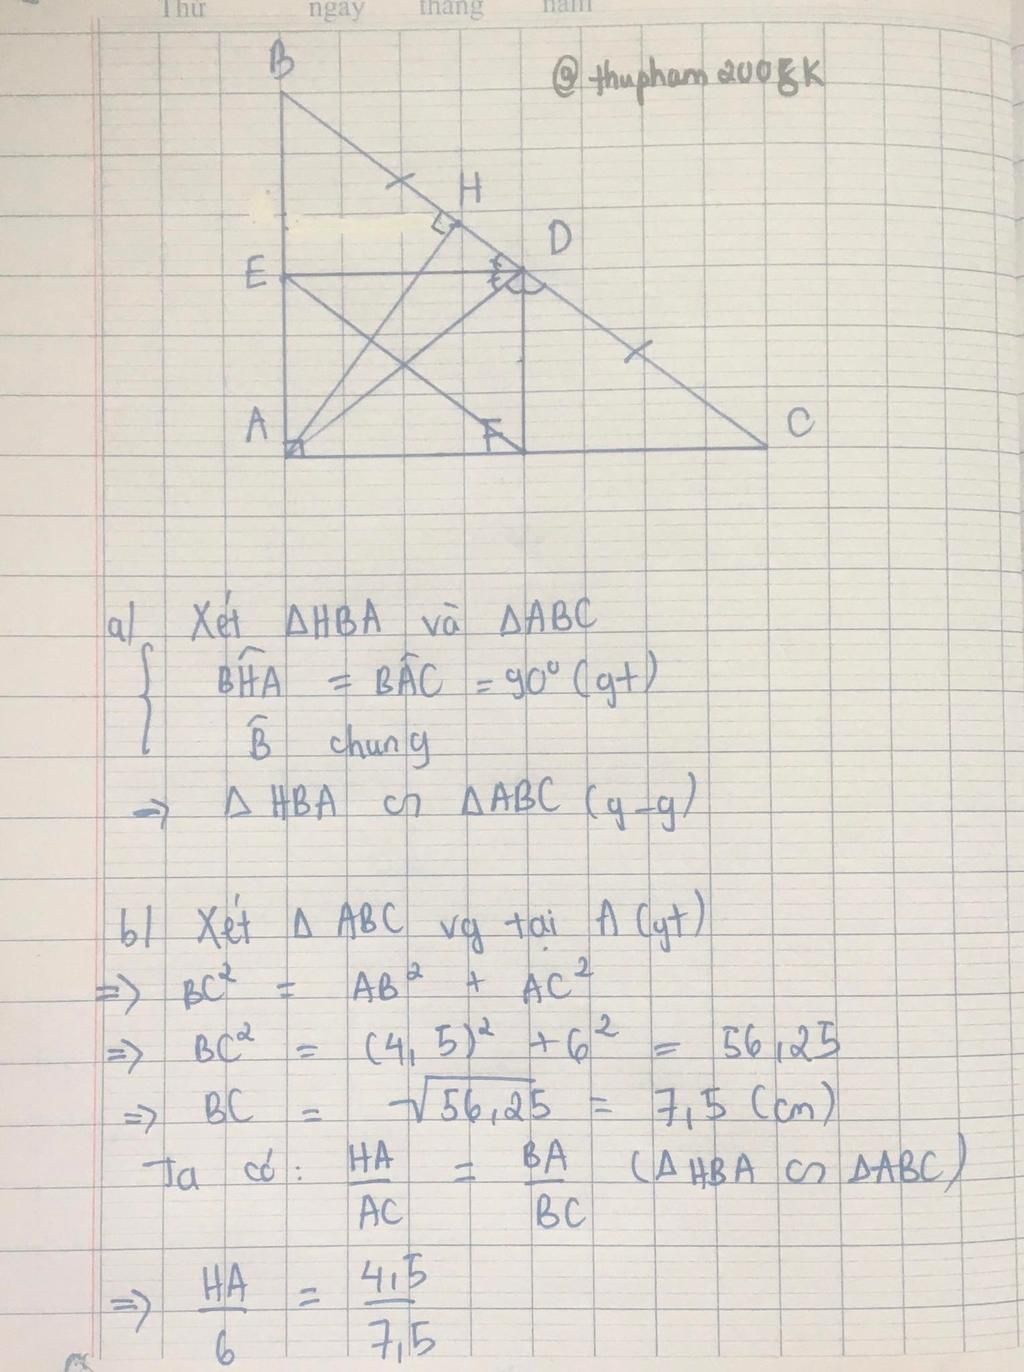 Thứ ngày tháng năm
@thupham2005K
B
H
D
E
A
F
C
a/ Xét ΔHBA và ΔABC
BĤA = BÂC = 90° (gt)
B̂ chung
=> ΔHBA ∽ ΔABC (g-g)
b/ Xét Δ ABC vg tại A (gt)
=> BC² = AB² + AC²
=> BC² = (4,5)² + 6² = 56,25
=> BC = √56,25 = 7,5 (cm)
Ta có: HA/AC = BA/BC (ΔHBA ∽ ΔABC)
=> HA/6 = 4,5/7,5